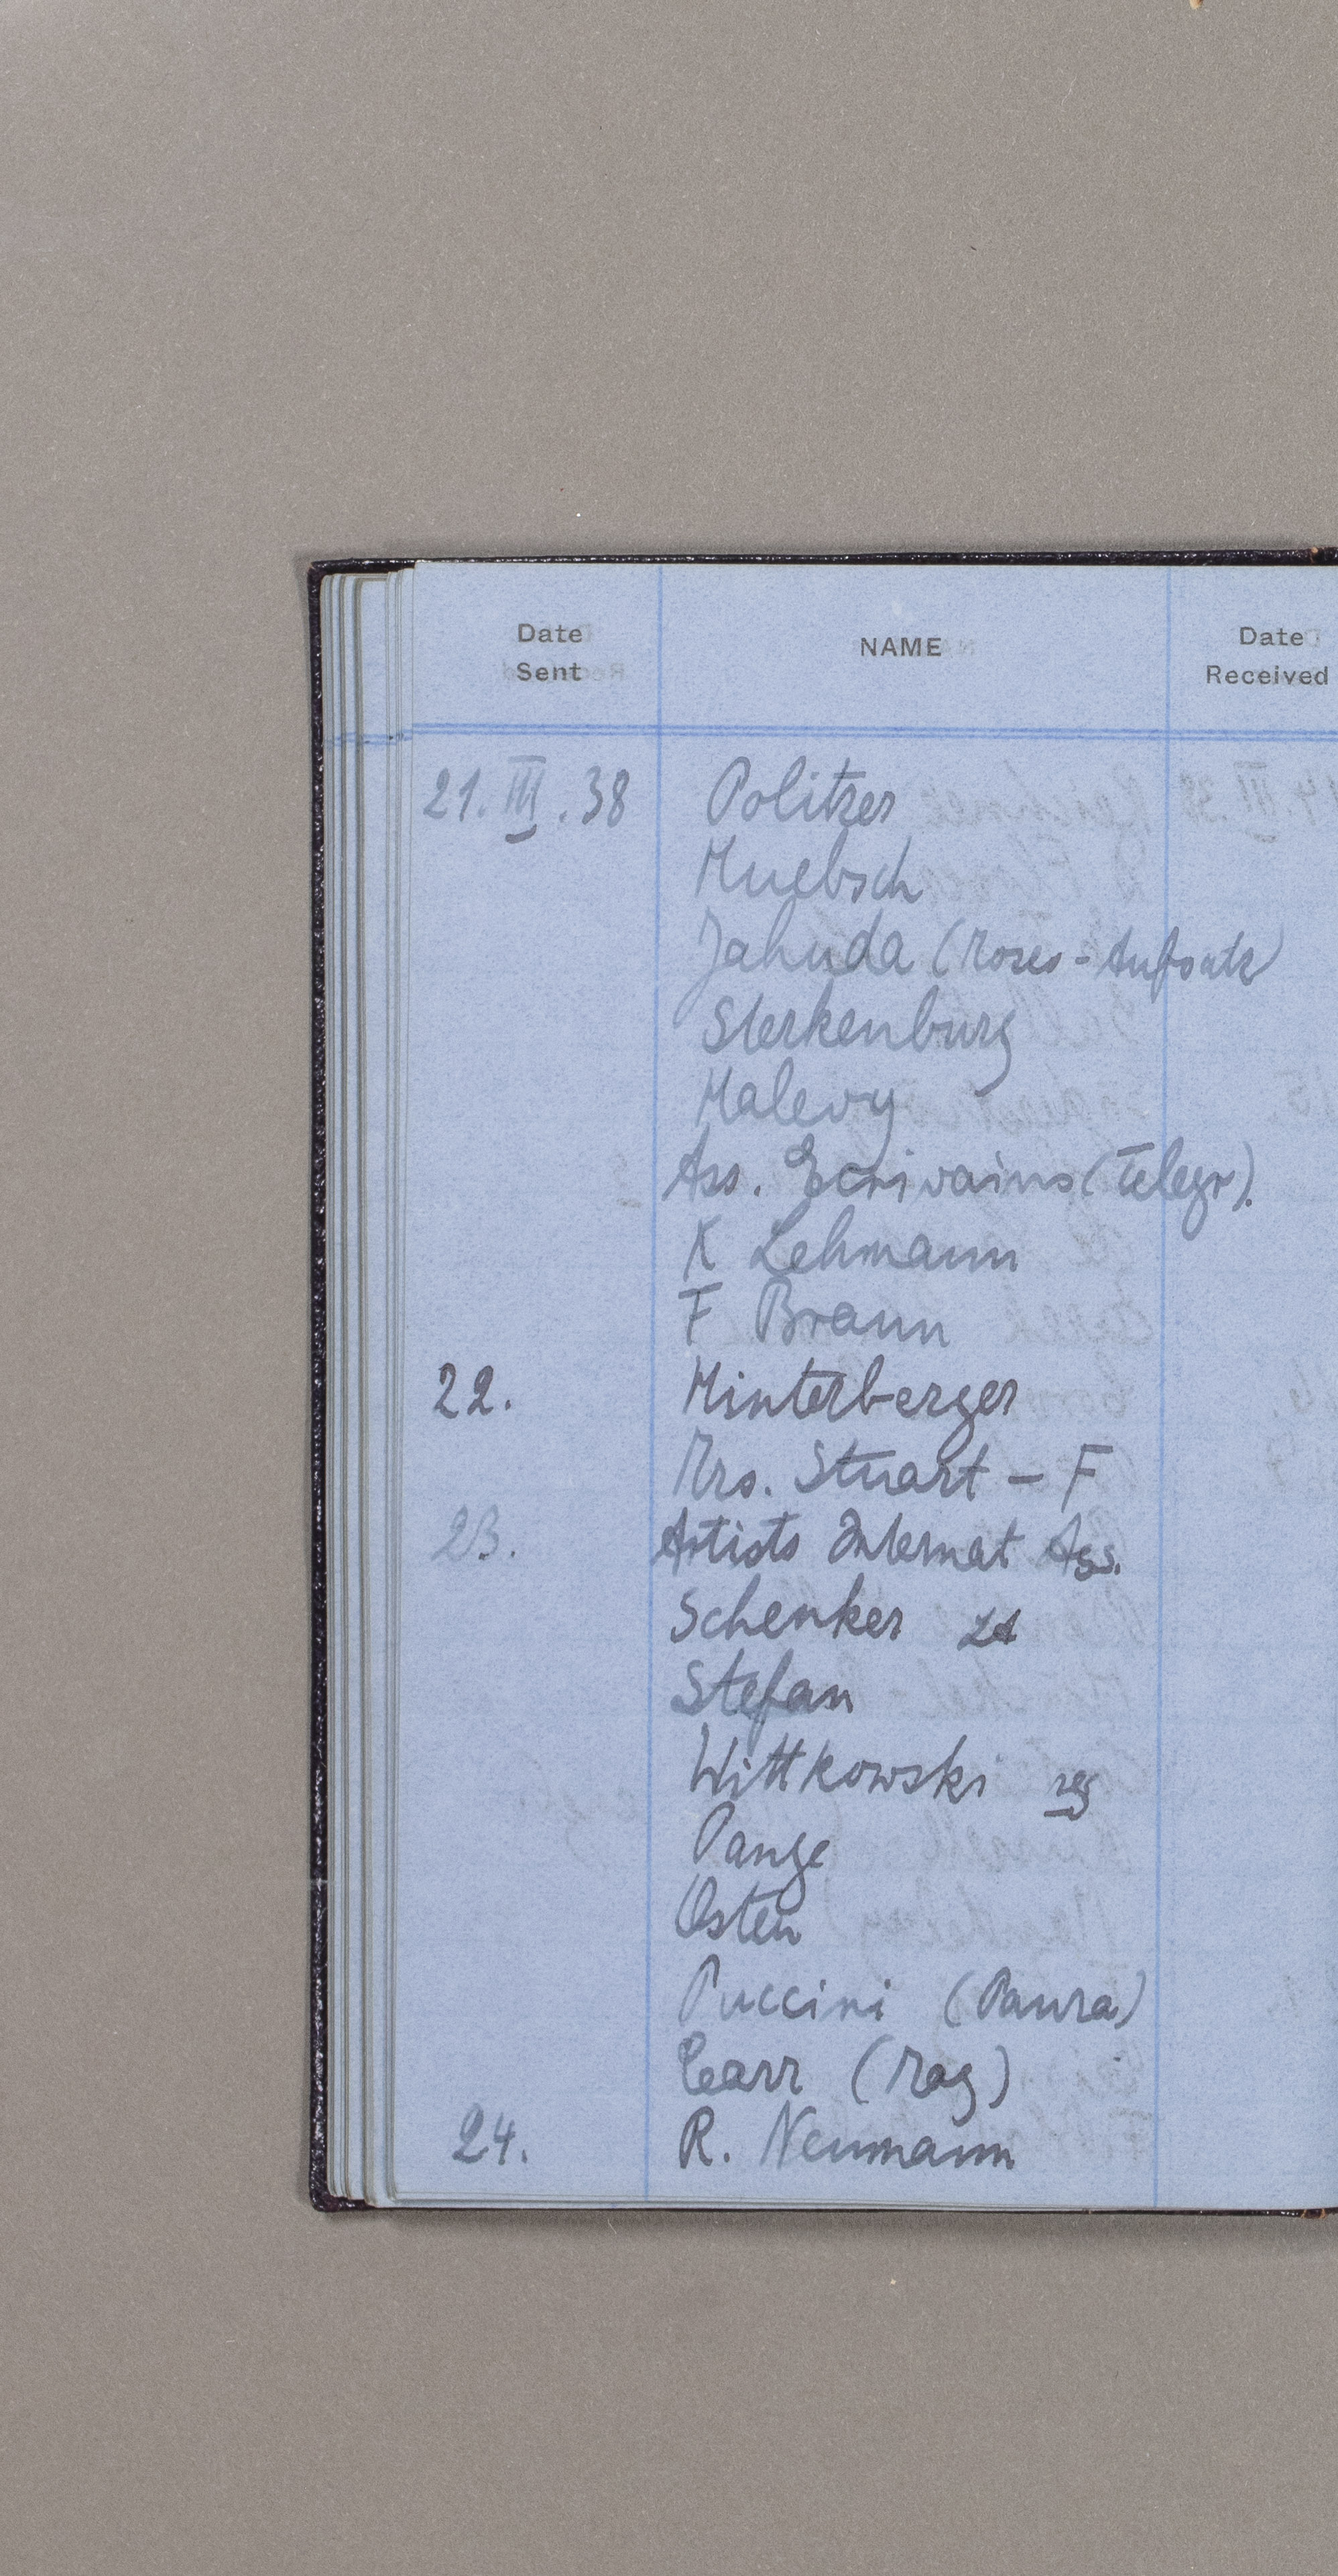 Date Sent
NAME
Date Received
21. III. 38 Politzer
Huebsch
Jahuda (Moses-Aufsatz)
Sterkenburg
Halevy
Ass. Ecrivains (Telegr).
K Lehmann
F Braun
22. Hinterberger
Mrs. Stuart - F
23. Artists Internat Ass.
Schenker
Stefan
Wittkowski reg
Pange
Osten
Puccini (Paura)
Carr (Mag)
24. R. Neumann